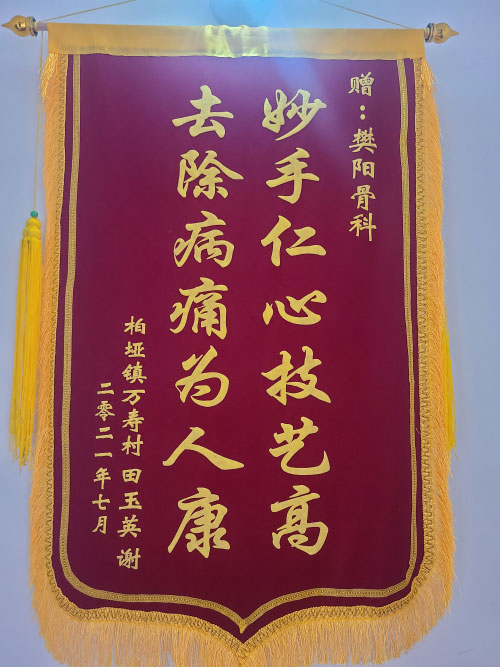 赠：樊阳骨科
妙手仁心技艺高
去除病痛为人康
柏垭镇万寿村 田玉英 谢
二零二一年七月